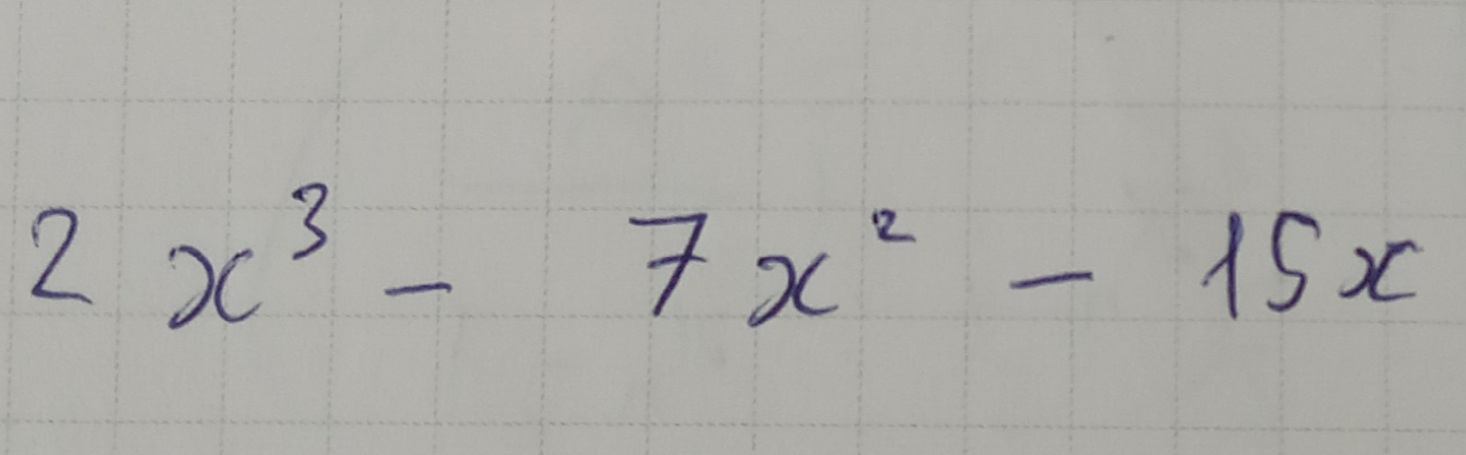 2x³ - 7x² - 15x